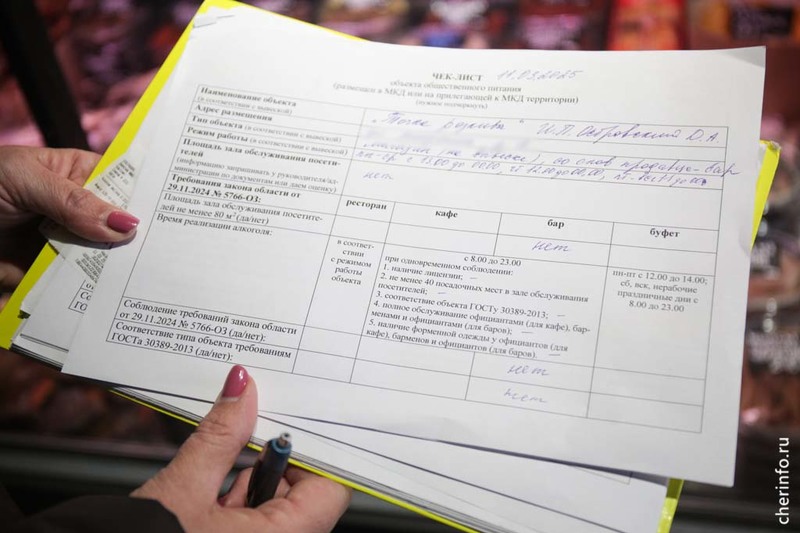 ЧЕК-ЛИСТ 11.03.2025
объекта общественного питания
(размещено в МКД или на прилегающей к МКД территории)
(нужное подчеркнуть)
Наименование объекта
(в соответствии с вывеской)
"Точка розлива" И.П. Островский Д.А.
Адрес размещения
Тип объекта (в соответствии с вывеской)
магазин (на вывеске), со слов продавца-бар
Режим работы (в соответствии с вывеской)
Площадь зала обслуживания посети-
телей
(информацию запрашивать у руководителя/ад-
министрации по документам или даем оценку)
нет
Требования закона области от
29.11.2024 № 5766-ОЗ:
ресторан кафе бар буфет
Площадь зала обслуживания посетите-
лей не менее 80 м² (да/нет)
нет
Время реализации алкоголя:
в соответ-
ствии
с режимом
работы
объекта
с 8.00 до 23.00
при одновременном соблюдении:
1. наличие лицензии; —
2. не менее 40 посадочных мест в зале обслуживания
посетителей; —
3. соответствие объекта ГОСТу 30389-2013; —
4. полное обслуживание официантами (для кафе), бар-
менами и официантами (для баров); —
5. наличие форменной одежды у официантов (для
кафе), барменов и официантов (для баров). —
пн-пт с 12.00 до 14.00;
сб, вск, нерабочие
праздничные дни с
8.00 до 23.00
Соблюдение требований закона области
от 29.11.2024 № 5766-ОЗ (да/нет):
нет
Соответствие типа объекта требованиям
ГОСТа 30389-2013 (да/нет):
нет
cherinfo.ru